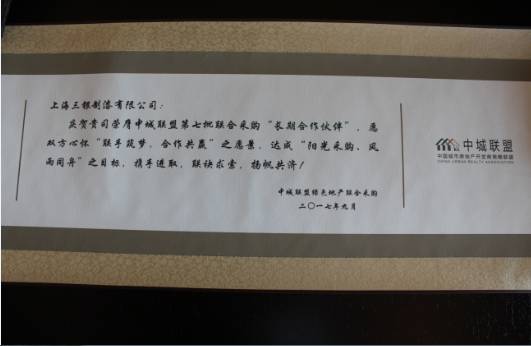 上海三银制漆有限公司：
欣贺贵司荣膺中城联盟第七批联合采购“长期合作伙伴”，愿
双方心怀“联手筑梦，合作共赢”之愿景，达成“阳光采购、风
雨同舟”之目标，携手进取，联袂求索，扬帆共济！
中城联盟绿色地产联合采购
二〇一七年九月
中城联盟
中国城市房地产开发商策略联盟
CHINA URBAN REALTY ASSOCIATION